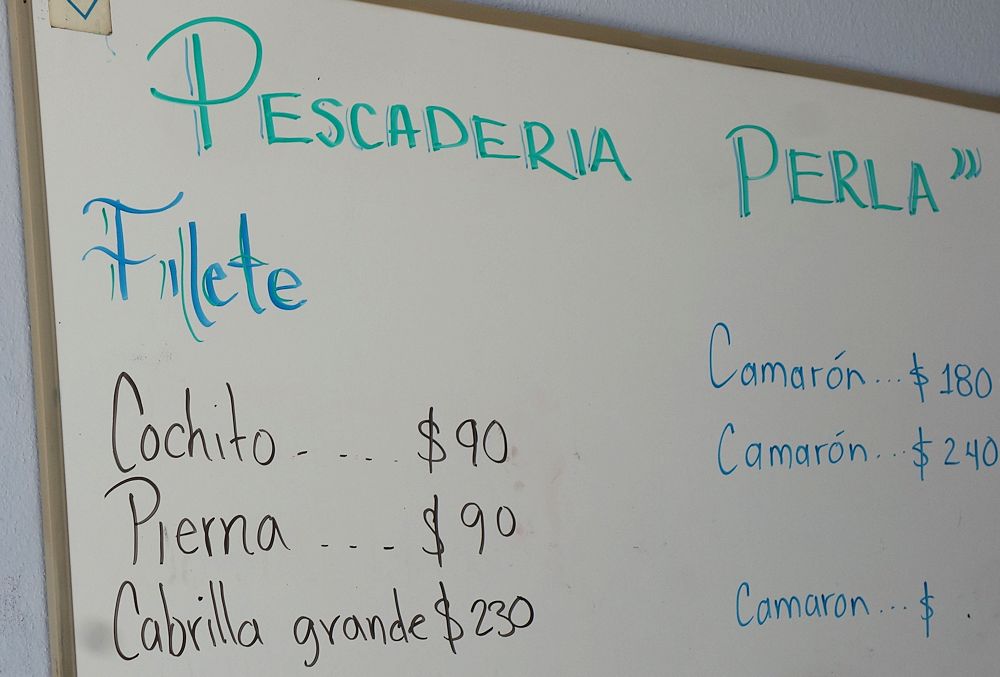 PESCADERIA PERLA
Fillete
Cochito.... $90
Pierna .... $90
Cabrilla grande $230
Camarón... $180
Camarón... $240
Camaron... $ .